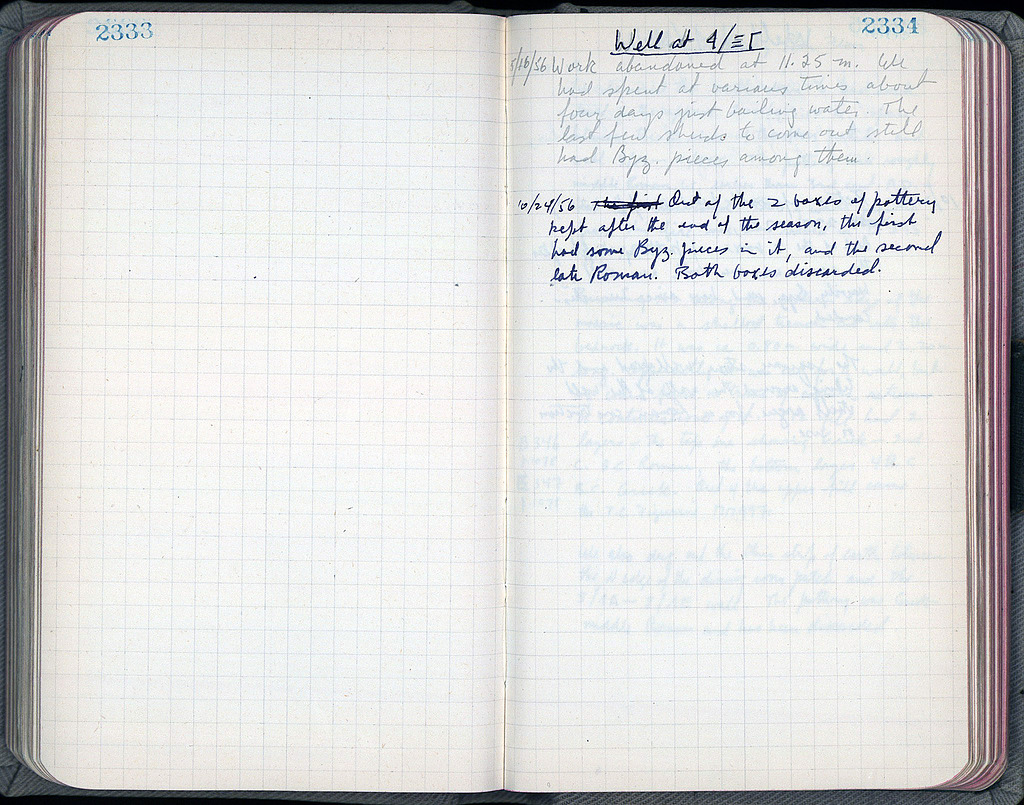 2333
2334
Well at 4/ΞΓ
5/16/56 Work abandoned at 11.25 m. We
had spent at various times about
four days just bailing water. The
last few sherds to come out still
had Byz. pieces among them.
10/24/56 The first Out of the 2 boxes of pottery
kept after the end of the season, the first
had some Byz. pieces in it, and the second
late Roman. Both boxes discarded.